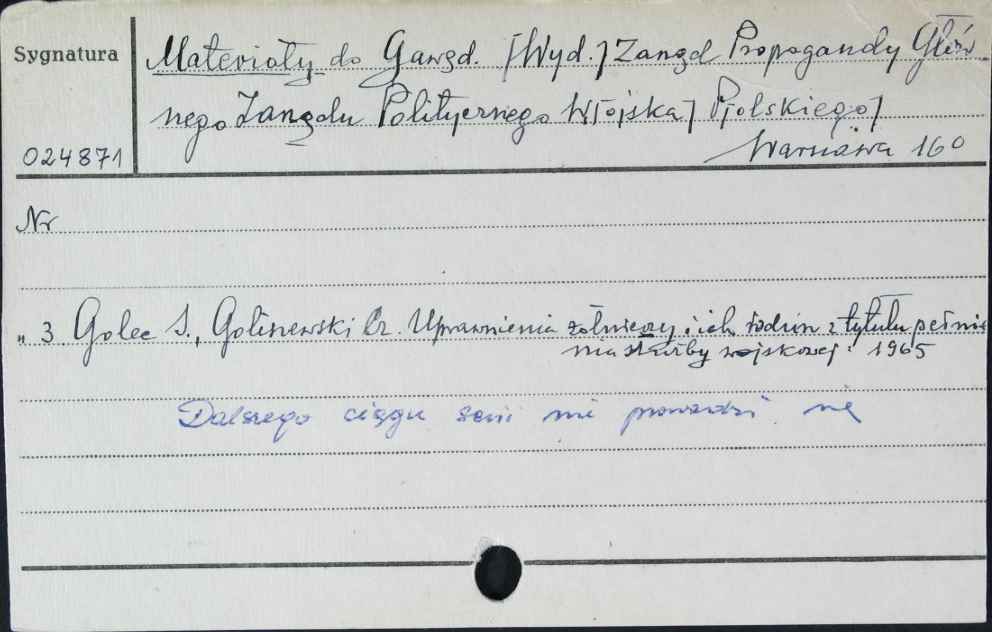 Sygnatura
Materiały do Gawęd. [Wyd.] Zarząd Propagandy Głów-
nego Zarządu Politycznego W[ojska] P[olskiego]
024871
Warszawa 16°
Nr
„ 3 Golec S., Goliszewski Cz. Uprawnienia żołnierzy i ich rodzin z tytułu pełnie
nia służby wojskowej. 1965
Dalszego ciągu serii nie prowadzi się